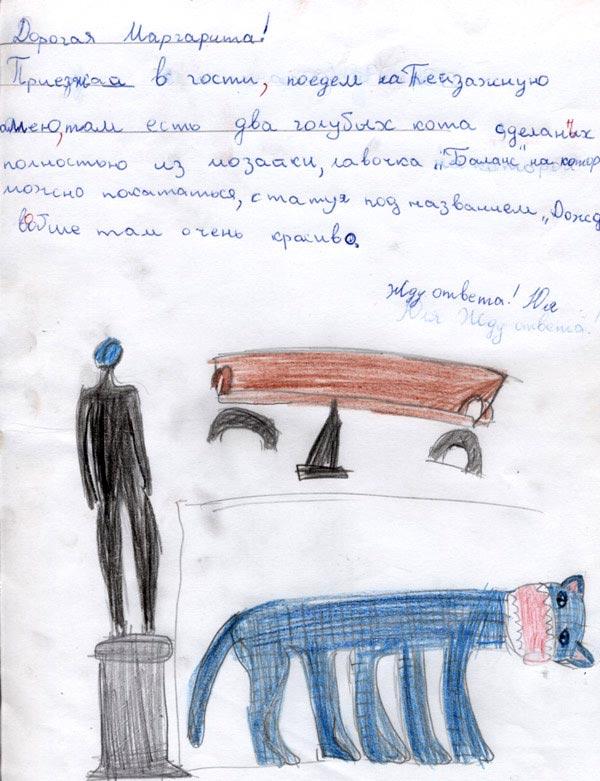 Дорогая Маргарита!
Приезжай в гости, поедем на Пейзажную
алею, там есть два голубых кота сделаных
полностью из мозайки, лавочка „Баланс" на котор
можно покататься, статуя под названием „Дожд
вобше там очень красиво.
Жду ответа! Юля
Юля Жду ответа!